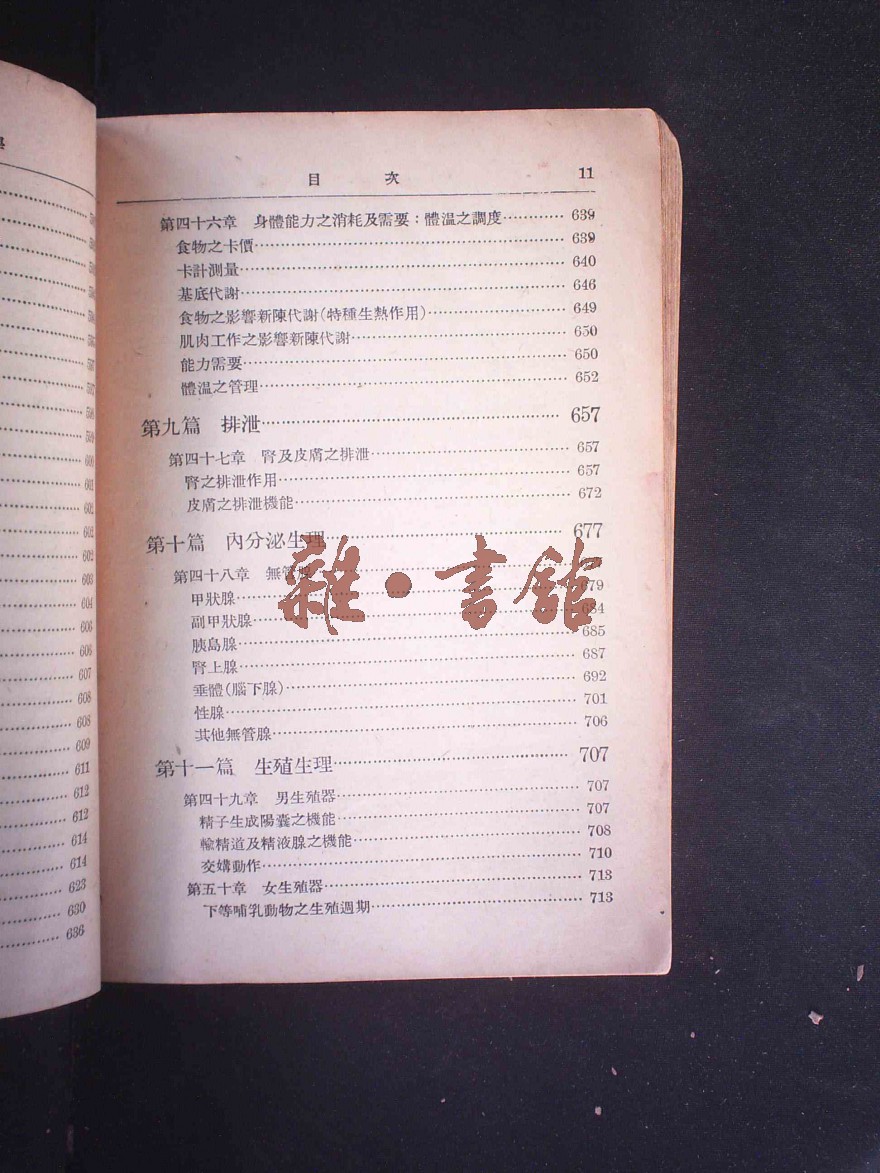 目 次 11
第四十六章 身體能力之消耗及需要；體溫之調度 639
食物之卡價 639
卡計測量 640
基底代謝 646
食物之影響新陳代謝(特種生熱作用) 649
肌肉工作之影響新陳代謝 650
能力需要 650
體溫之管理 652
第九篇 排泄 657
第四十七章 腎及皮膚之排泄 657
腎之排泄作用 657
皮膚之排泄機能 672
第十篇 內分泌生理 677
第四十八章 無管腺
甲狀腺 679
副甲狀腺 684
胰島腺 685
腎上腺 687
垂體(腦下腺) 692
性腺 701
其他無管腺 706
第十一篇 生殖生理 707
第四十九章 男生殖器 707
精子生成陽囊之機能 707
輸精道及精液腺之機能 708
交媾動作 710
第五十章 女生殖器 713
下等哺乳動物之生殖週期 713
雜·書館
600
601
602
602
602
603
604
606
606
607
608
608
609
611
612
612
614
614
623
630
636